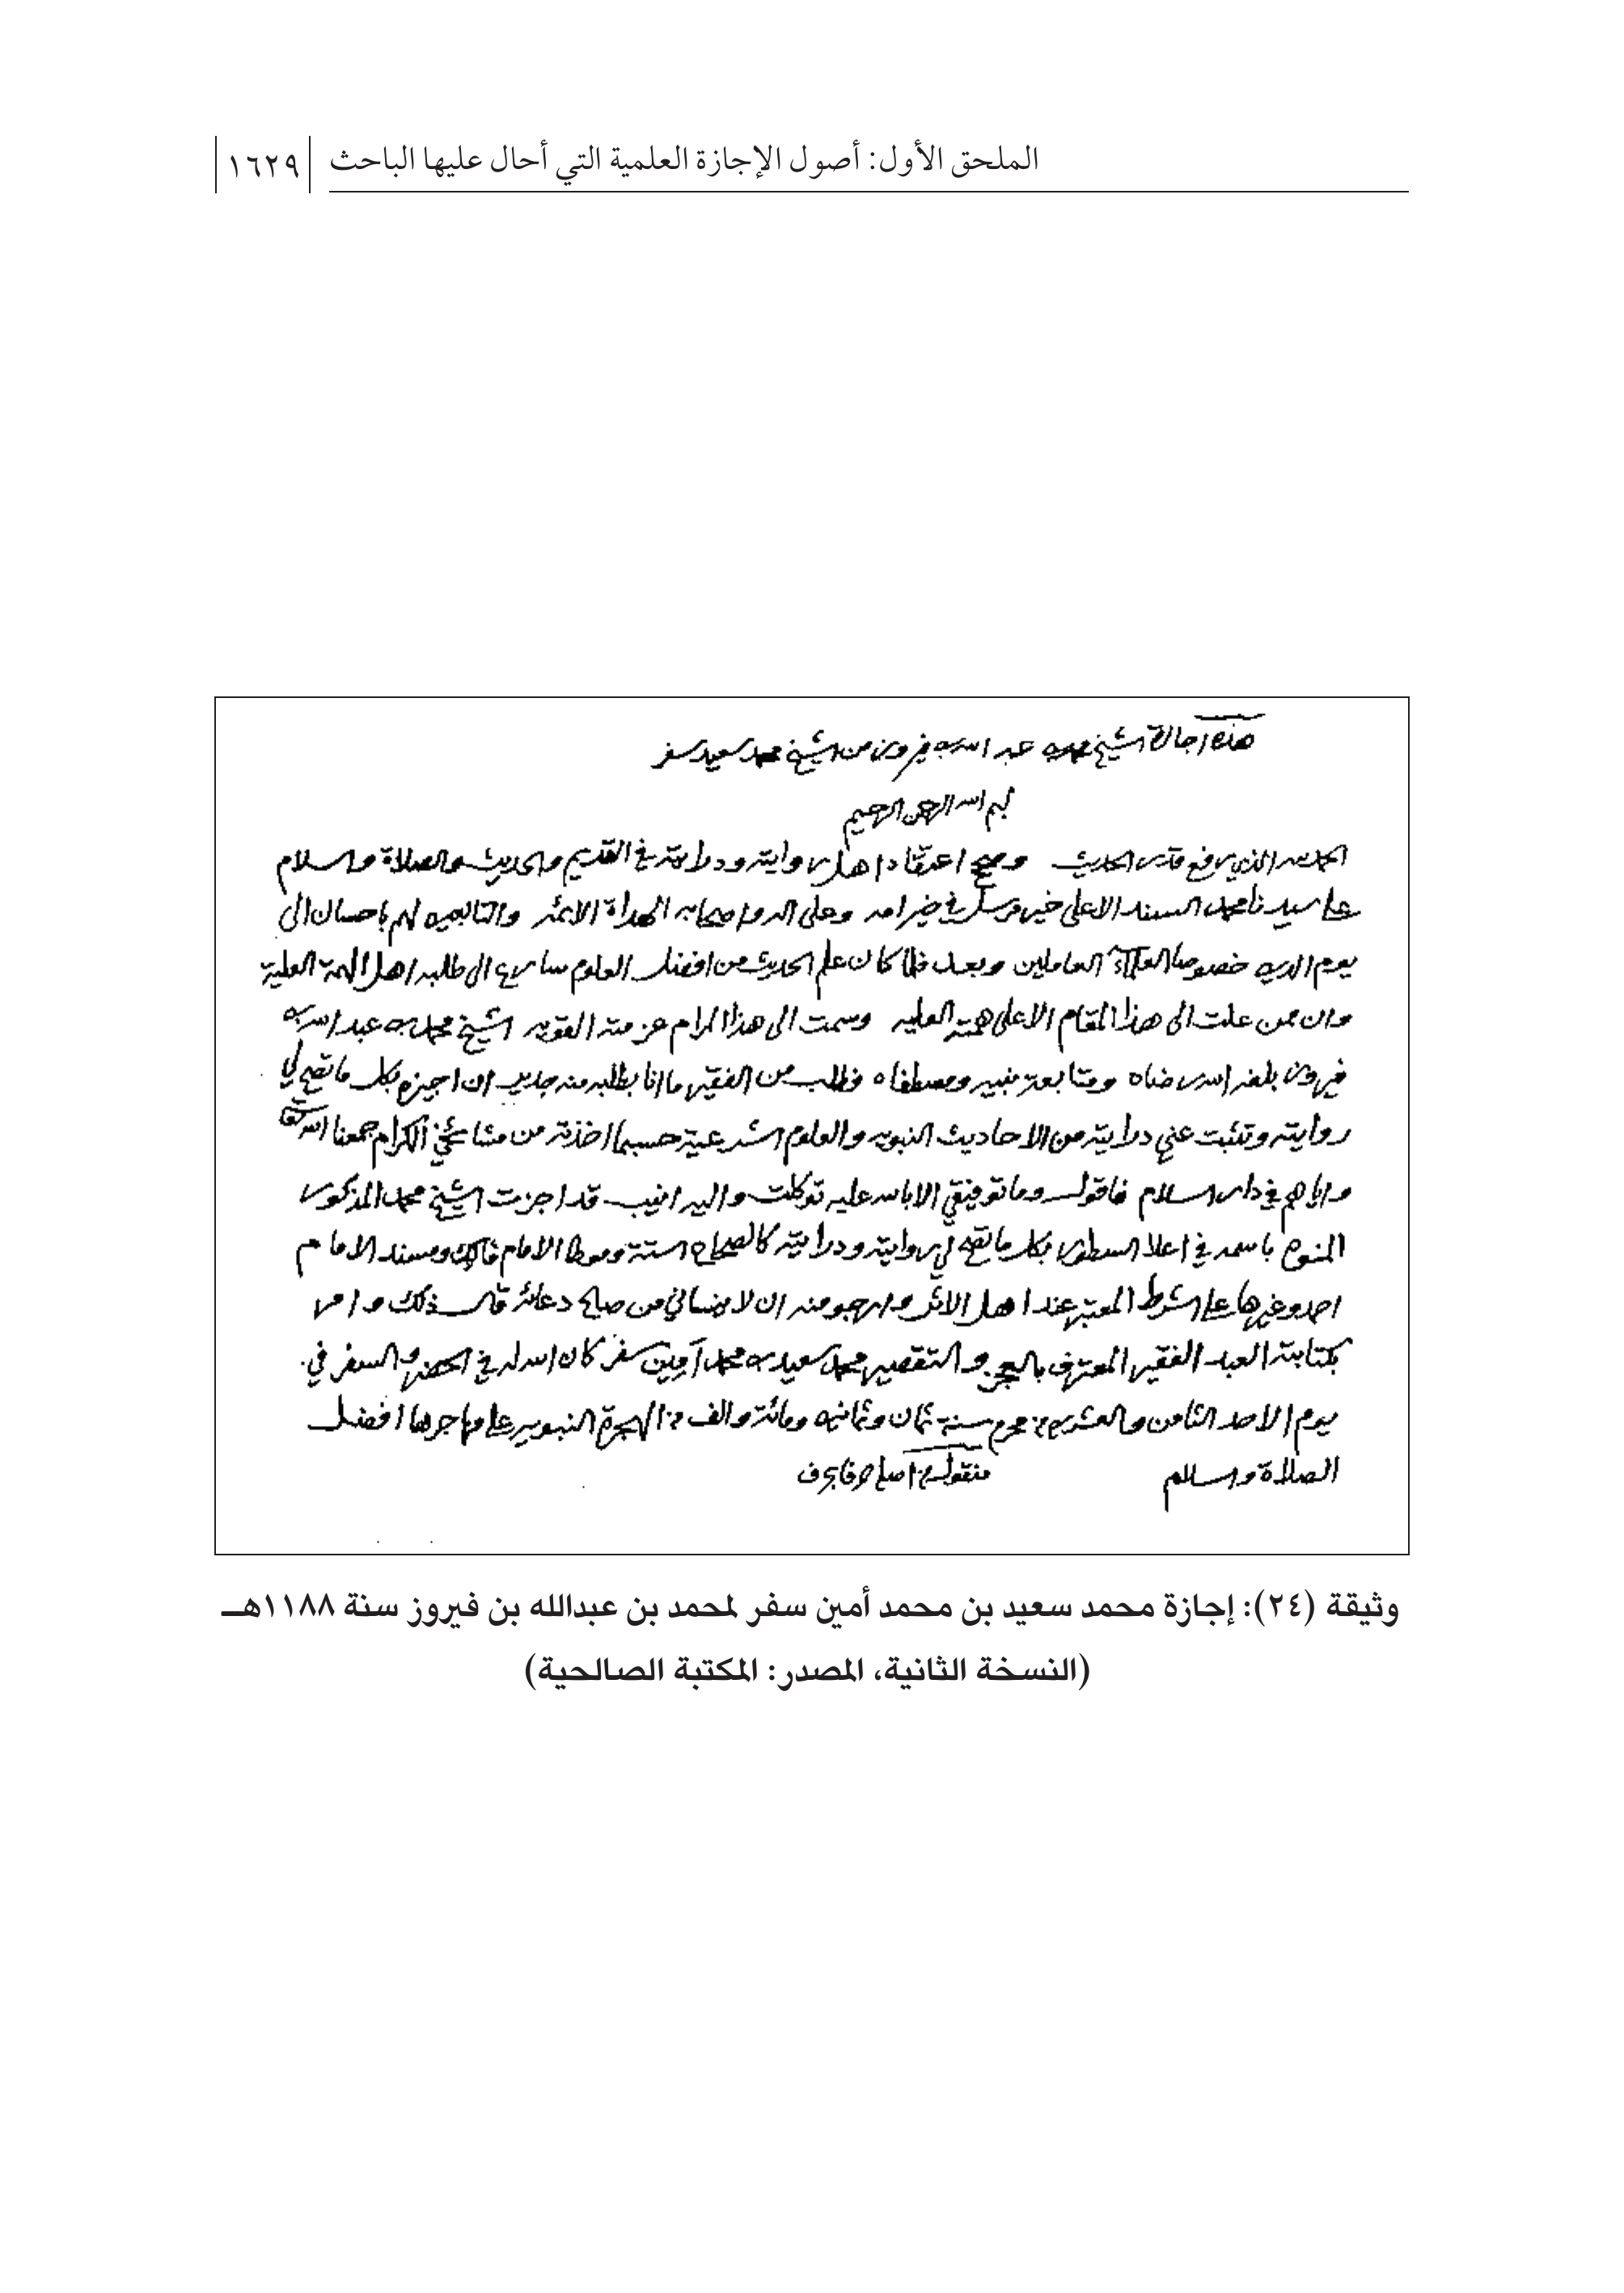 الملحق الأول: أصول الإجازة العلمية التي أحال عليها الباحث ١٦٢٩
هذه اجازة الشيخ محمد بن عبد الله بن فيروز من الشيخ محمد سعيد سفر
بسم الله الرحمن الرحيم
الحمد لله الذي رفع قدر الحديث وصحح اعتقاد اهل روايته ودرايته في القديم والحديث والصلاة والسلام
على سيدنا محمد السند الاعلى خير مرسل في خير امه وعلى اله واصحابه الهداة الائمه والتابعين لهم باحسان الى
يوم الدين خصوصا العلماء العاملين وبعد فلما كان علم الحديث من افضل العلوم سارع الى طلبه اهل الهمة العلية
وان ممن علت الى هذا المقام الاعلى همته العليه وسمت الى هذا المرام عزمته القويه الشيخ محمد بن عبد الله بن
فيروز بلغه الله رضاه ومتابعة نبيه ومصطفاه فطلب من الفقير ما انا بطلبه منه جدير ان اجيزه بكل ما تصح لي
روايته وتثبت عني درايته من الاحاديث النبويه والعلوم الشرعية حسبما اخذته من مشائخي الكرام جمعنا الله تعالى
واياهم في دار السلام فاقول وما توفيقي الا بالله عليه توكلت واليه انيب قد اجزت الشيخ محمد المذكور
المنوه باسمه في اعلا السطور بكل ما تصح لي روايته ودرايته كالصحاح الستة وموطا الامام مالك ومسند الامام
احمد وغيرها على الشرط المعتبر عند اهل الاثر وارجو منه ان لا ينساني من صالح دعائه قال ذلك وامر
بكتابته العبد الفقير المعترف بالعجز والتقصير محمد سعيد بن محمد أمين سفر كان الله له في الحضر والسفر في
يوم الاحد الثامن والعشرين من محرم سنة ثمان وثمانين ومائة والف من الهجرة النبويه على مهاجرها افضل
الصلاة والسلام منقول من اصله حرفا بحرف
وثيقة (٢٤): إجازة محمد سعيد بن محمد أمين سفر لمحمد بن عبدالله بن فيروز سنة ١١٨٨هـ
(النسخة الثانية، المصدر: المكتبة الصالحية)